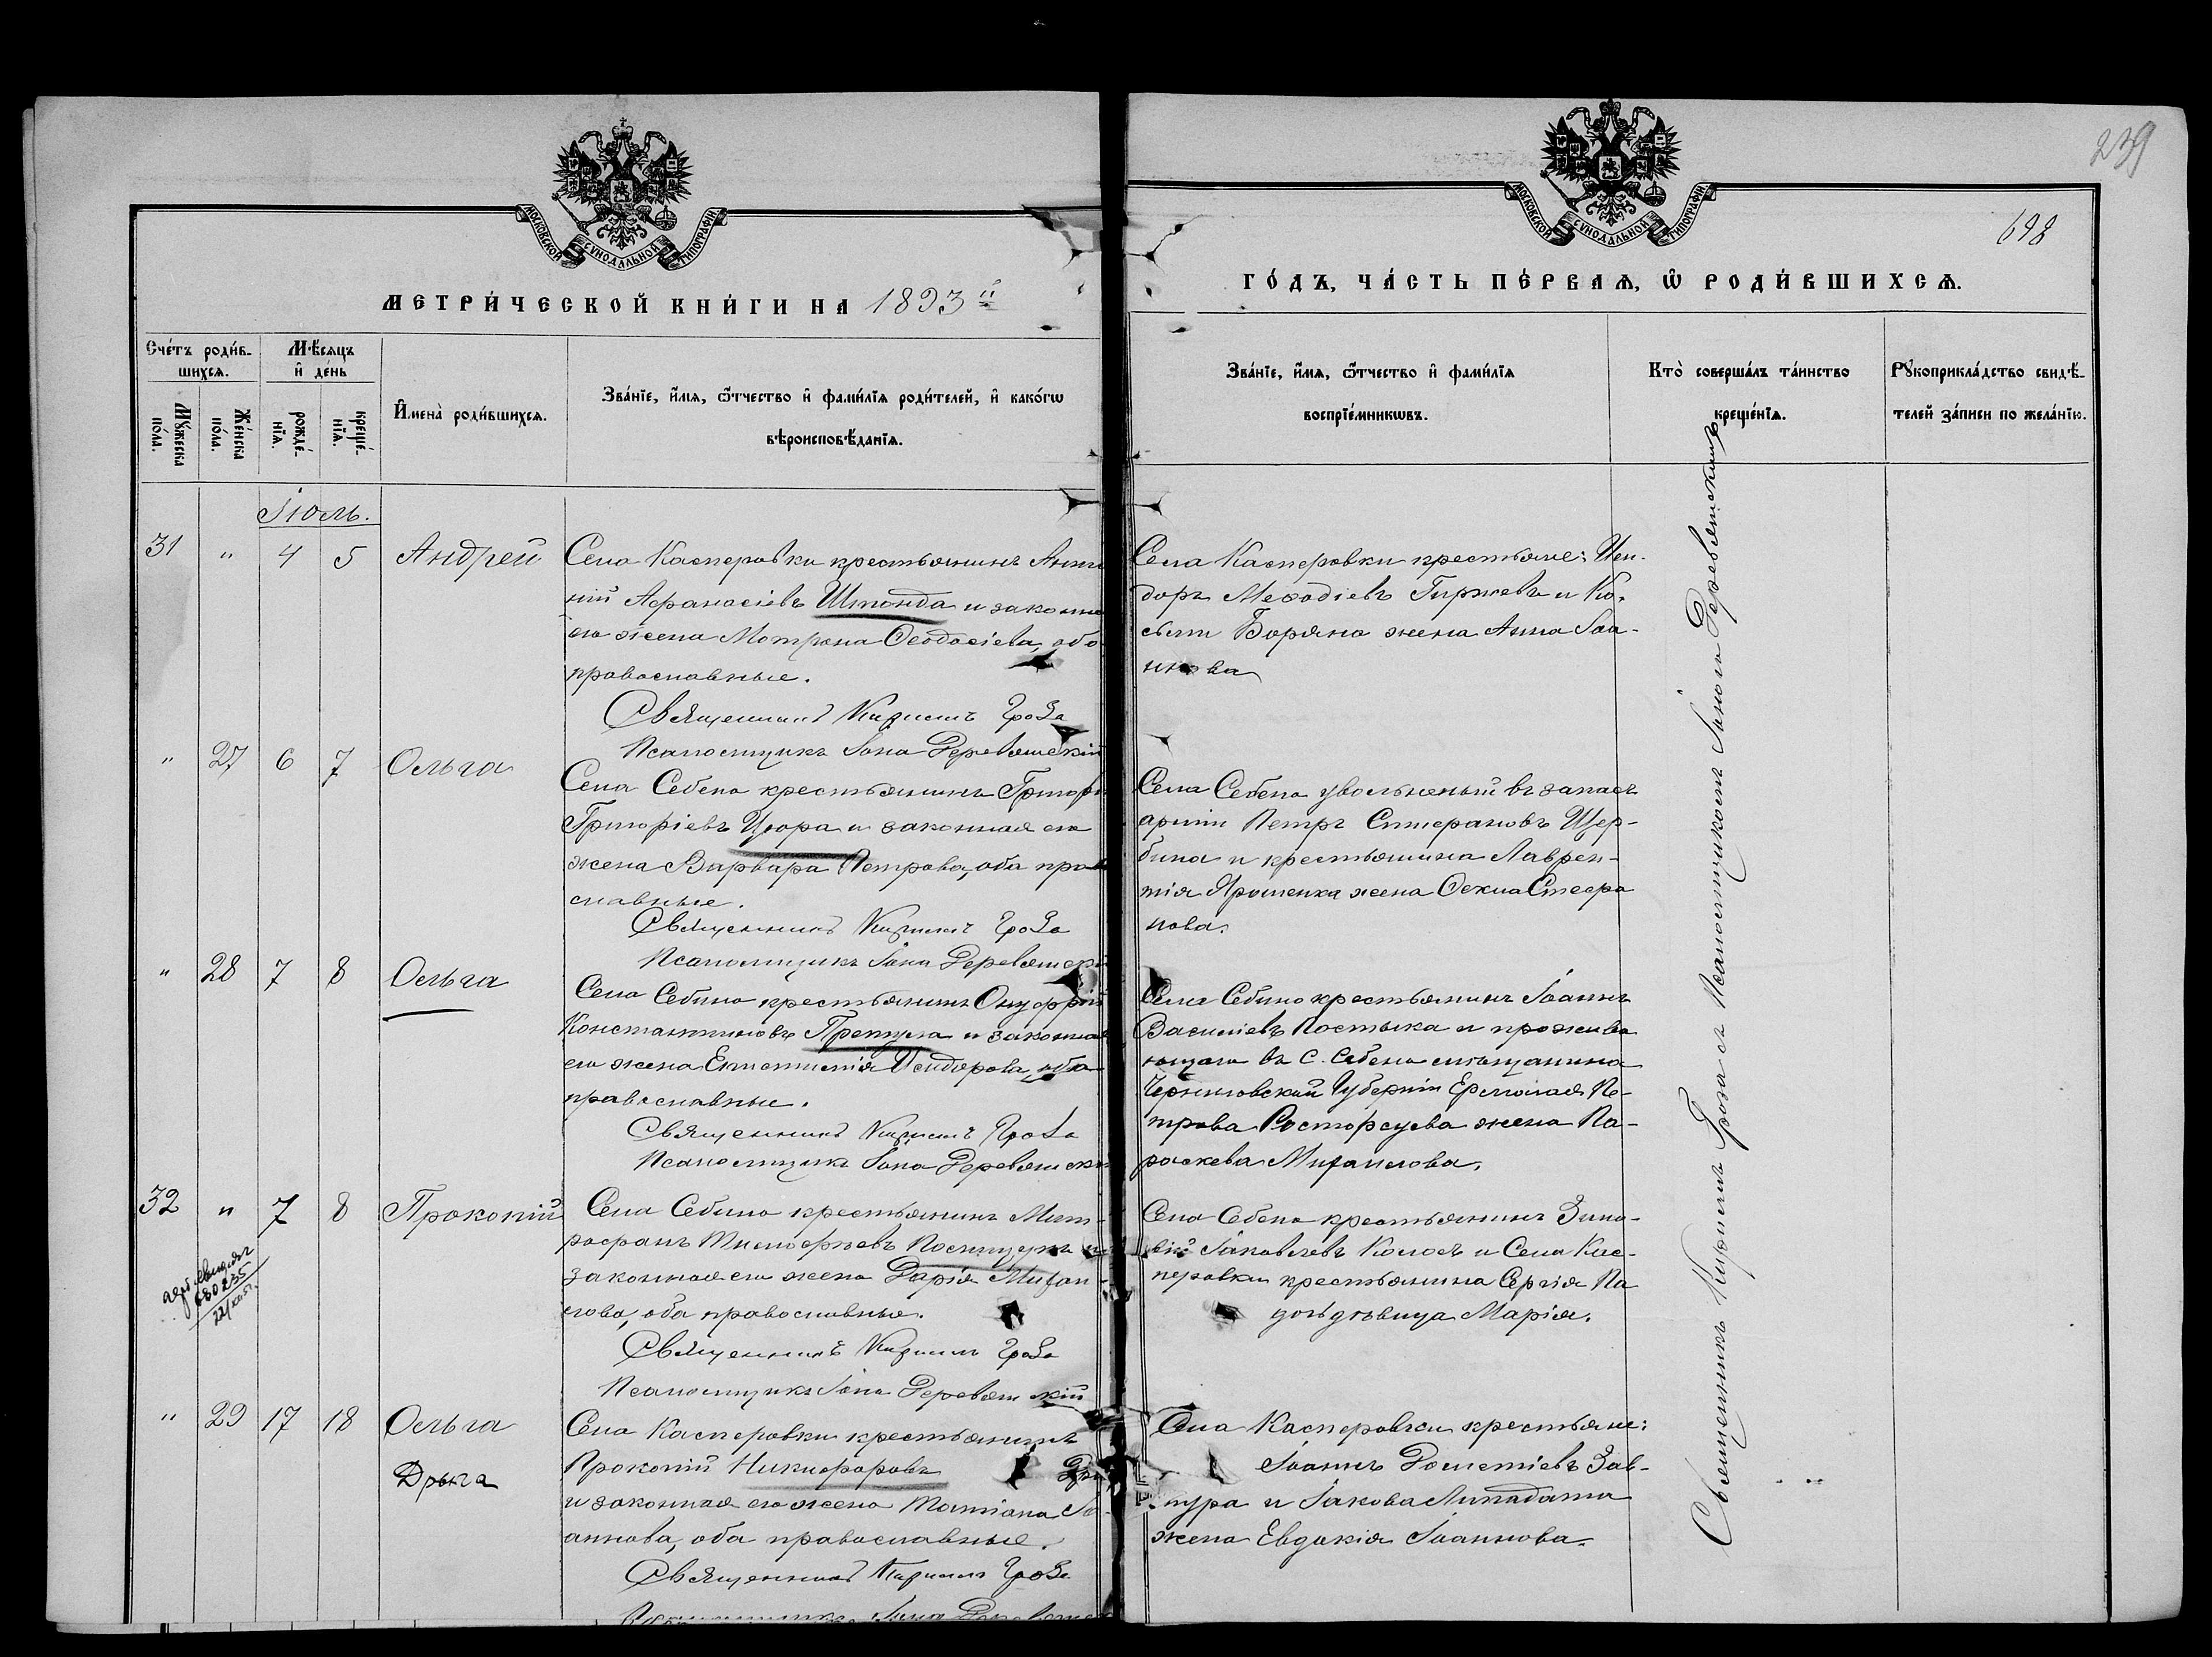 239
698
МОСКОВСКОЙ СУНОДАЛЬНОЙ ТИПОГРАФІИ
МОСКОВСКОЙ СУНОДАЛЬНОЙ ТИПОГРАФІИ
МЕТРИ́ЧЕСКОЙ КНИ́ГИ НА 1893 й
ГО́ДЪ, ЧА́СТЬ ПЕ́РВАѦ, Ѿ РОДИ́ВШИХСѦ.
Сче́тъ роди́в-
шихсѧ.
Мꙋ́жеска по́ла.
Же́нска по́ла.
Мѣ́сѧцъ
и҆ де́нь
рожде́-
нїѧ.
креще́-
нїѧ.
И҆мена̀ роди́вшихсѧ.
Зва́нїе, и҆́мѧ, ѻ҆́тчество и҆ фами́лїѧ роди́телей, и҆ како́гѡ
вѣроисповѣ́данїѧ.
Зва́нїе, и҆́мѧ, ѻ҆́тчество и҆ фами́лїѧ
воспрїе́мникѡвъ.
Кто̀ соверша́лъ та́инство
креще́нїѧ.
Рꙋкоприкла́дство свидѣ́-
телей за́писи по жела́нїю.
Іюль.
31 " 4 5 Андрей
Села Касперовки крестьянинъ Анто
ній Афанасіевъ Шпонда и законна
его жена Мотрона Ѳеодосіева, оба
православные.
Священникъ Кириллъ Гроза
Псаломщикъ Іона Деревянскій
Села Касперовки крестьяне: Иси-
доръ Меѳодіевъ Гиржевъ и Ко-
сьмы жена Анна Іоа-
ннова
" 27 6 7 Ольга
Села Себено крестьянинъ Григорі
Григоріевъ Цюра и законная его
жена Варвара Петрова, оба прав
славные.
Священникъ Кириллъ Гроза
Псаломщикъ Іона Деревянскі
Села Себено увольненый въ запасъ
арміи Петръ Стефановъ Щер-
бина и крестьянина Лаврен-
тія Ярошенка жена Ѳекла Стефа
нова.
" 28 7 8 Ольга
Села Себино крестьянинъ Онуфрій
Константиновъ и законная
его жена Епистимія Исидорова, оба
православные.
Священникъ Кириллъ Гроза
Псаломщикъ Іона Деревянскі
Села Себино крестьянинъ Іоаннъ
Василіевъ Костыка и прожива
ющаго въ с. Себено мѣщанина
Черниговской Губерніи Ермолая Пе-
трова Расторгуева жена Па-
раскева Михаилова.
32 " 7 8 Прокопій
680235
Села Себино крестьянинъ Мит-
рофанъ Тимофѣевъ и
законная его жена Дарія Михаи-
лова, оба православные.
Священникъ Кириллъ Гроза
Псаломщикъ Іона Деревянскій
Села Себено крестьянинъ Зино-
вій Іаковлевъ Колосъ и Села Кас-
перовки крестьянина Сергія
дѣвица Марія.
" 29 17 18 Ольга
Дрыга
Села Касперовки крестьянинъ
Прокопій Никифоровъ Дры
и законная его жена Татіана Іо-
аннова, оба православные.
Священникъ Кириллъ Гроза
Псаломщикъ Іона Деревянскі
Села Касперовки крестьяне:
Іоаннъ Дометіевъ
и Іакова жена Евдокія Іоаннова.
Священникъ Кириллъ Гроза съ Псаломщикомъ Іоною Деревянскимъ